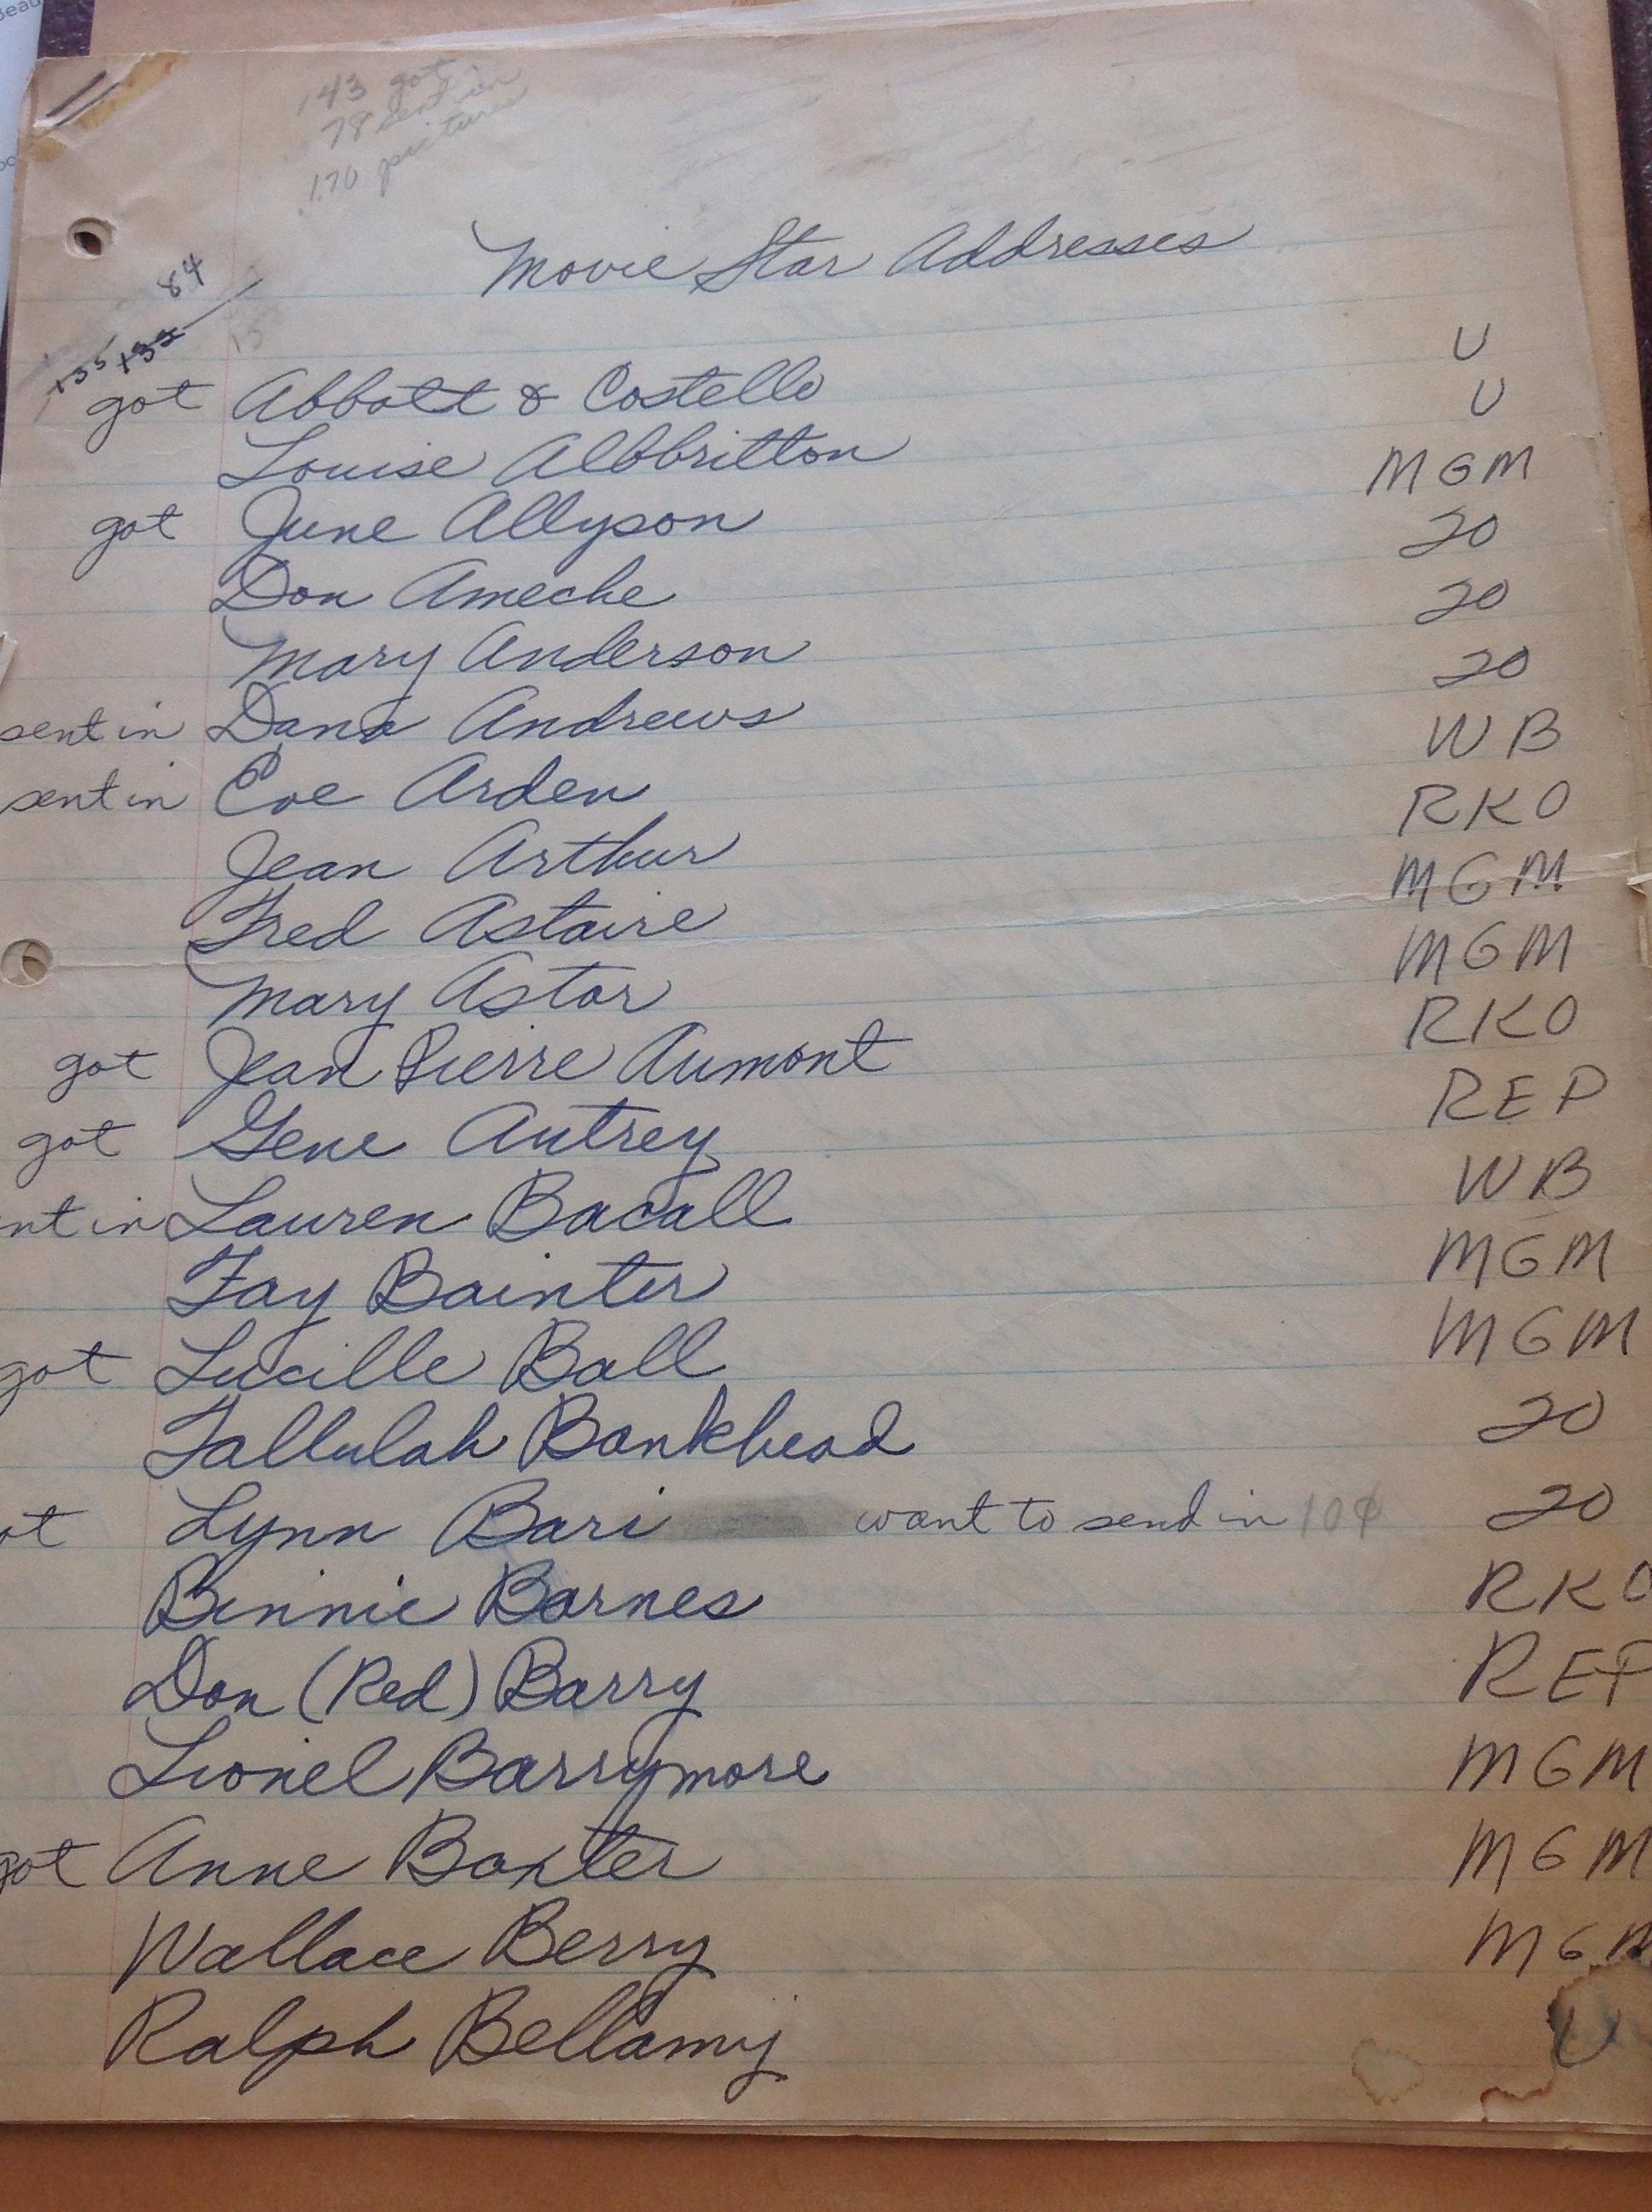 143 got
78 sent in
170 pictures
Movie Star Addresses
84
135 132
15
got Abbott & Costello U
Louise Albbritton U
got June Allyson MGM
Don Ameche 20
Mary Anderson 20
sent in Dana Andrews 20
sent in Eve Arden WB
Jean Arthur RKO
Fred Astaire MGM
Mary Astor MGM
got Jean Pierre Aumont RKO
got Gene Autrey REP
nt in Lauren Bacall WB
Fay Bainter MGM
got Lucille Ball MGM
Tallulah Bankhead 20
ot Lynn Bari want to send in 10¢ 20
Binnie Barnes RKO
Don (Red) Barry REP
Lionel Barrymore MGM
got Anne Baxter MGM
Wallace Berry MGM
Ralph Bellamy U